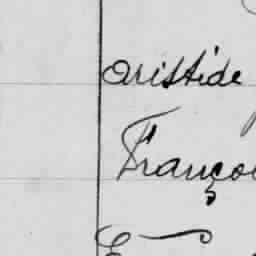 Aristide
Françoi